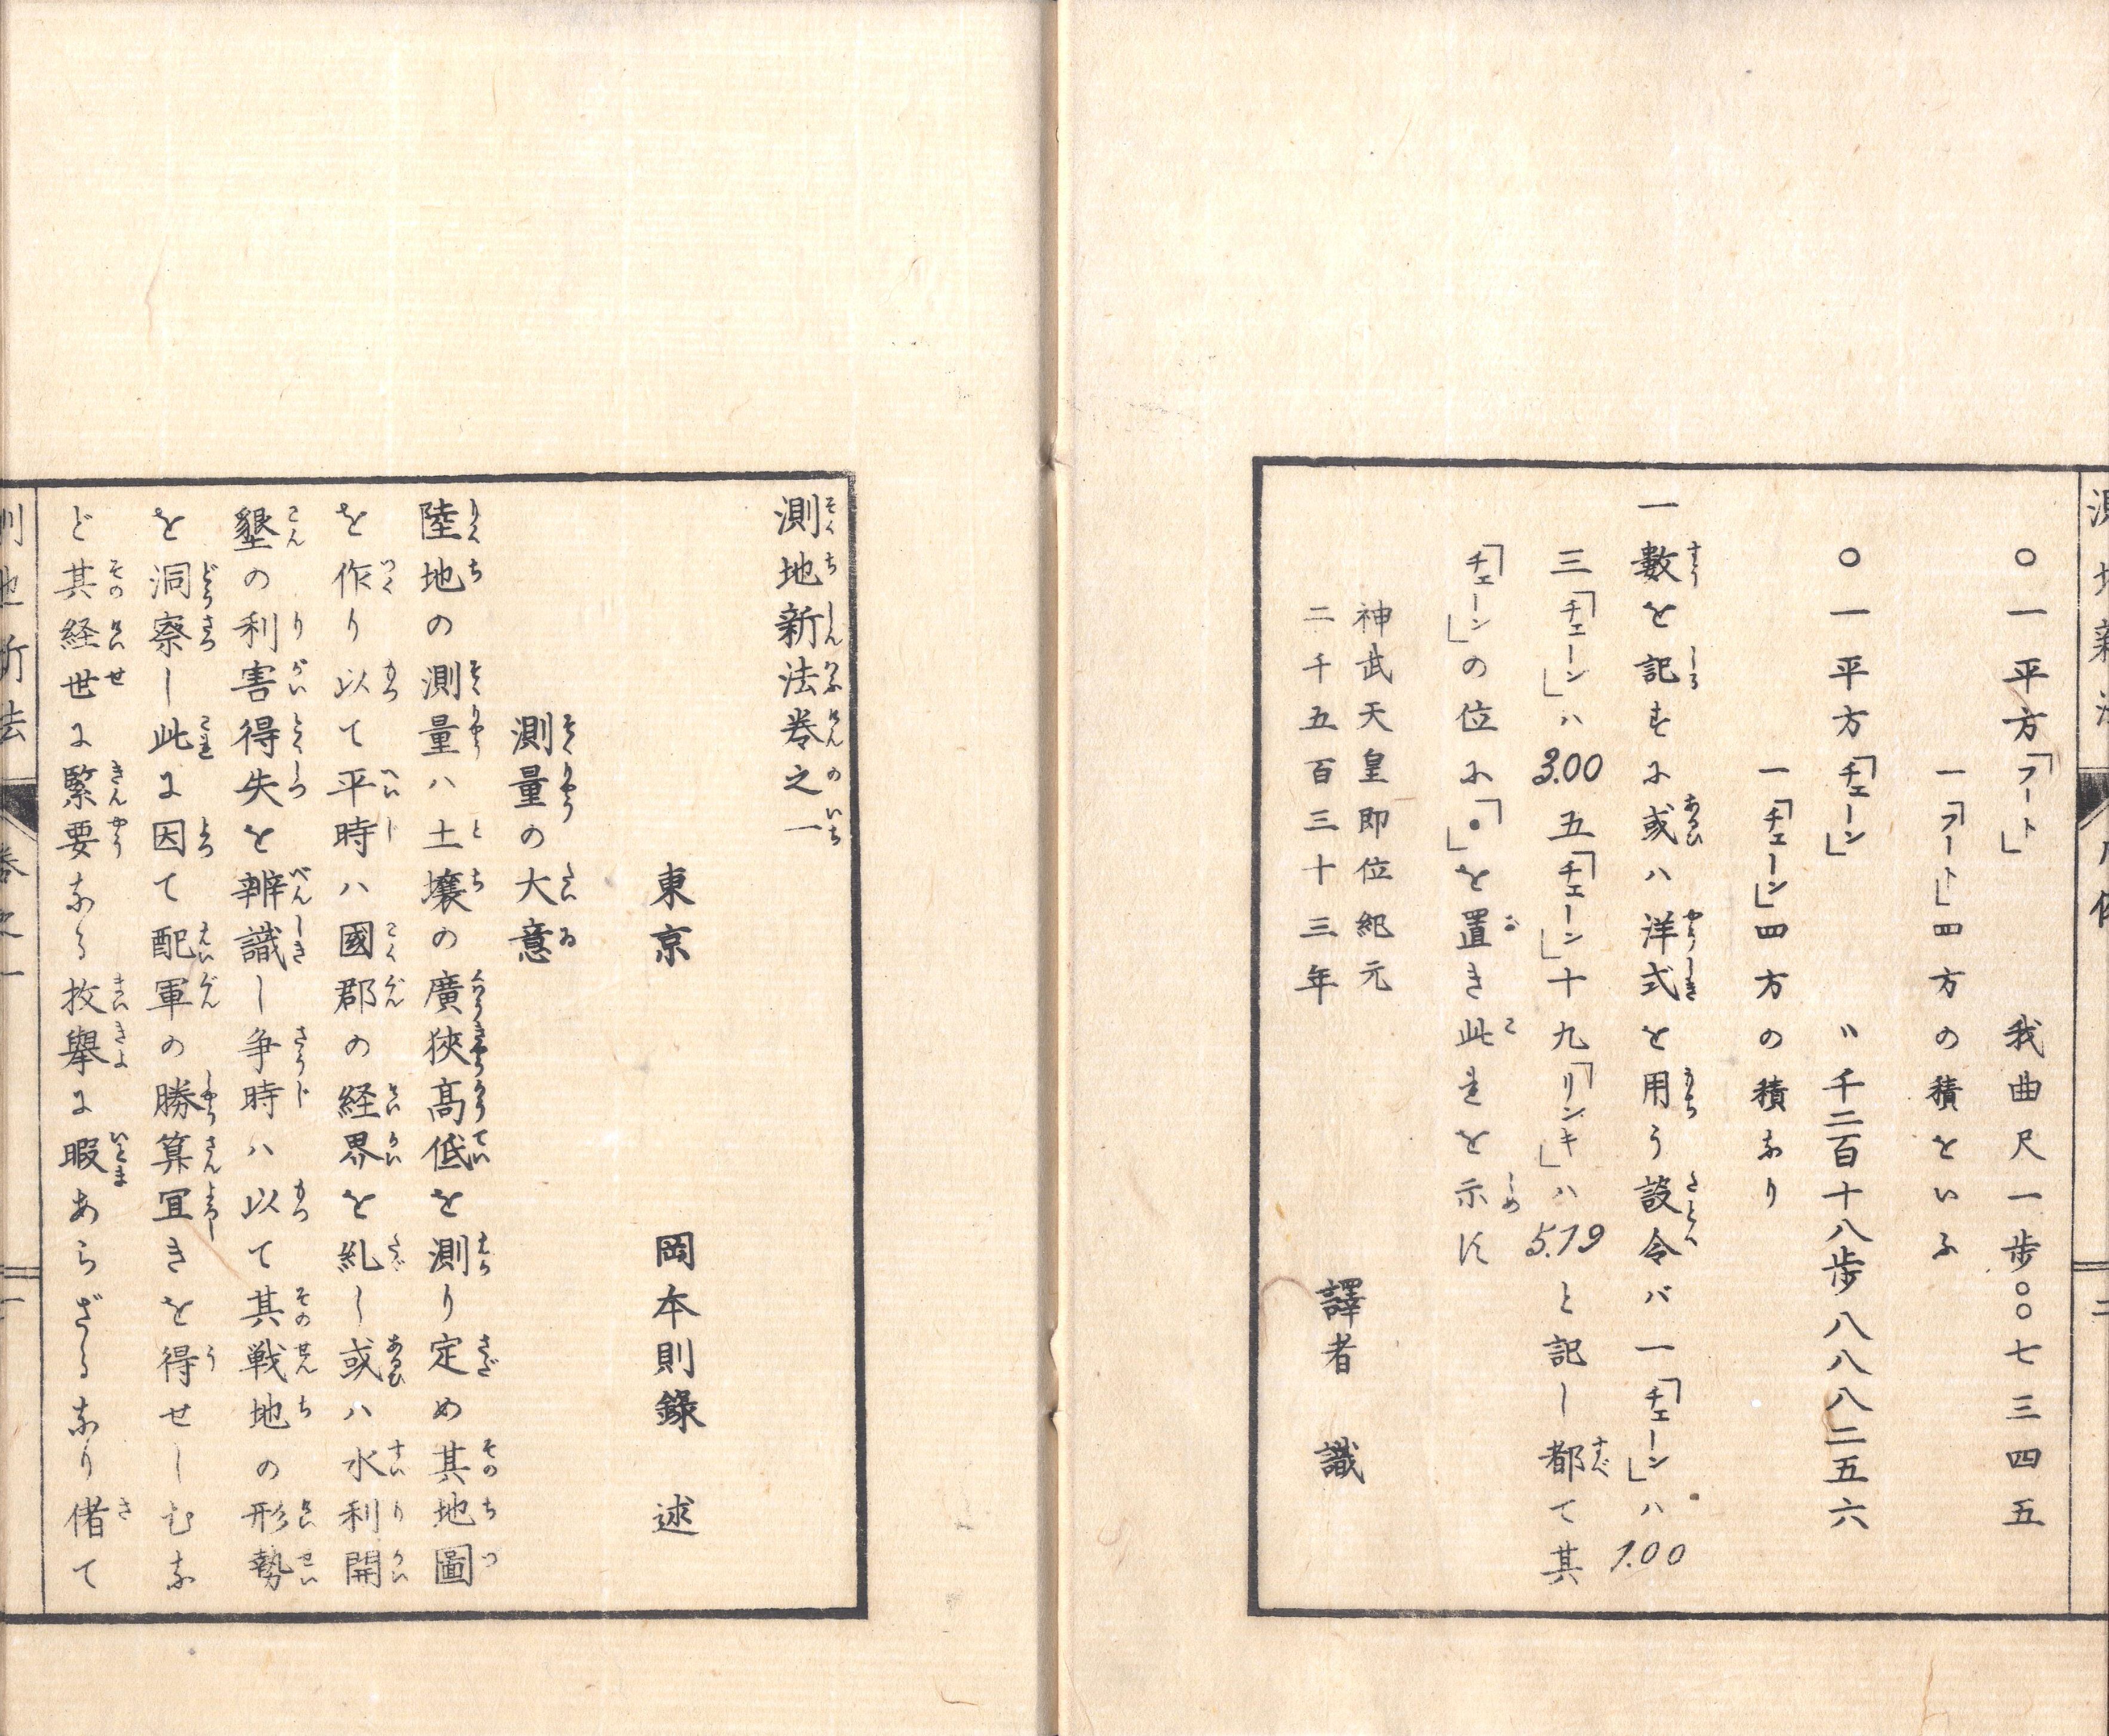 ○一平方「フート」　我曲尺一歩○○七三四五
一「フート」四方の積をいふ
○一平方「チェーン」　〃千二百十八歩八八八二五六
一「チェーン」四方の積なり
一數を記すに或ハ洋式を用う設令バ一「チェーン」ハ1.00
三「チェーン」ハ3.00五「チェーン」十九「リンキ」ハ5.19と記し都て其
「チェーン」の位に「●」を置き此れを示す
神武天皇即位紀元
二千五百三十三年
譯者　識
測地新法巻之一
東京　岡本則錄　述
測量の大意
陸地の測量ハ土壌の廣狹高低を測り定め其地圖
を作り以て平時ハ國郡の経界を糺し或ハ水利開
墾の利害得失を辨識し争時ハ以て其戦地の形勢
を洞察し此に因て配軍の勝算冝きを得せしむな
ど其経世に緊要なる枚舉に暇あらざるなり偖て
測地新法　巻之一